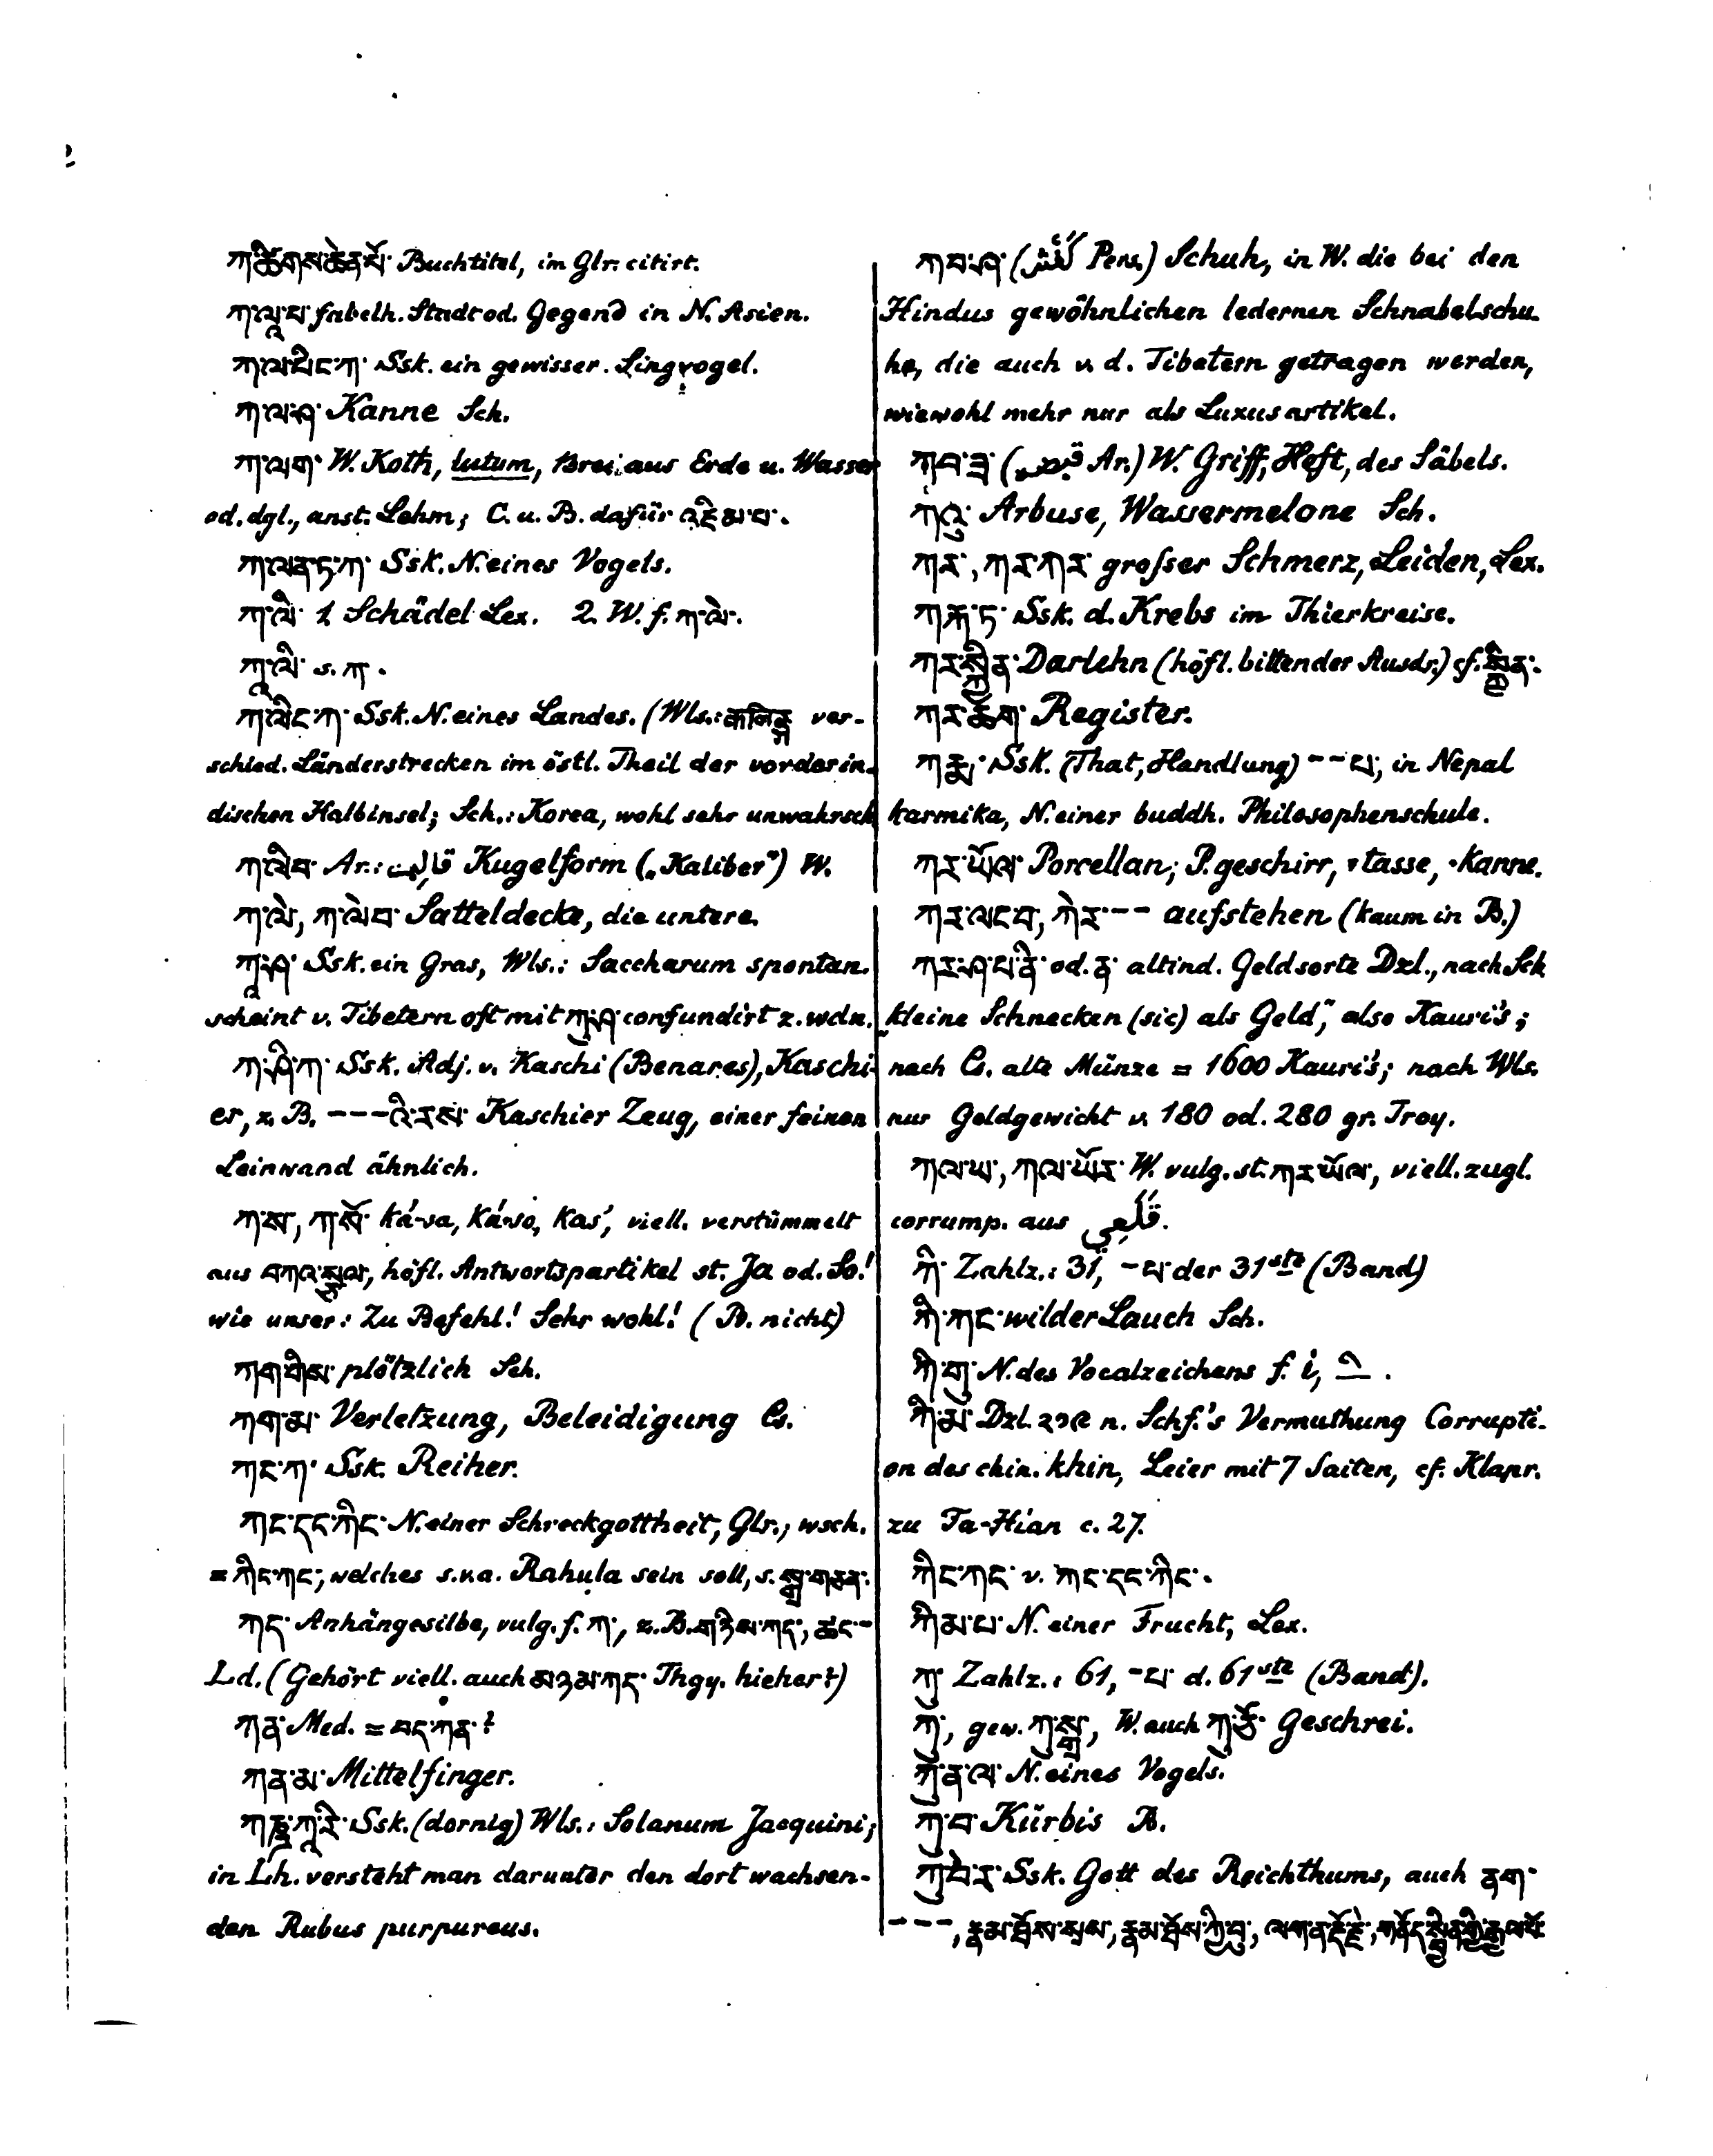 2
ཀ་ཚིགས་ཆེན་པོ་ Buchtitel, im Glr. citirt.
ཀ་ལཱ་པ་ fabelh. Stadt od. Gegend in N. Asien.
ཀ་ལ་པིང་ཀ་ Ssk. ein gewisser Singvogel.
ཀ་ལ་ཤ་ Kanne Sch.
ཀ་ལག་ W. Koth, lutum, Brei aus Erde u. Wasser
od. dgl., anst. Lehm; C. u. B. dafür འཇིམ་པ་.
ཀ་ལན་ཏ་ཀ་ Ssk. N. eines Vogels.
ཀ་ལི་ 1. Schädel Lex. 2. W. f. ཀ་ལེ་.
ཀཱ་ལི་ s. ཀ་.
ཀ་ལིང་ཀ་ Ssk. N. eines Landes. (Wls.: कलिङ्ग ver-
schied. Länderstrecken im östl. Theil der vorderin-
dischen Halbinsel; Sch.: Korea, wohl sehr unwahrsch
ཀ་ལིབ་ Ar.: قالِب Kugelform („Kaliber") W.
ཀ་ལེ་, ཀ་ལེབ་ Satteldecke, die untere.
ཀཱ་ཤ་ Ssk. ein Gras, Wls.: Saccharum spontan.
scheint v. Tibetern oft mit ཀུ་ཤ་ confundirt z. wdn.
ཀ་ཤི་ཀ་ Ssk. Adj. v. Kaschi (Benares), Kaschi-
er, z. B. ---འི་རས་ Kaschier Zeug, einer feinen
Leinwand ähnlich.
ཀ་ས་, ཀ་སོ་ ká-sa, ká-so, kas', viell. verstümmelt
aus བཀའ་སྩལ་, höfl. Antwortspartikel st. Ja od. So!
wie unser: Zu Befehl! Sehr wohl! (B. nicht)
ཀག་གིས་ plötzlich Sch.
ཀག་མ་ Verletzung, Beleidigung Cs.
ཀང་ཀ་ Ssk. Reiher.
ཀང་དང་ཀིང་ N. einer Schreckgottheit, Glr.; wsch.
= ཀིང་ཀང་, welches s.v.a. Rahula sein soll, s. སྒྲ་གཅན་.
ཀད་ Anhängesilbe, vulg. f. ཀ་, z. B. གཉིས་ཀད་, ཚང་-
Ld. (Gehört viell. auch མ་ཉམ་ཀད་ Thgy. hieher?)
ཀན་ Med. = བད་ཀན་?
ཀན་མ་ Mittelfinger.
ཀཎྚ་ཀཱ་རི་ Ssk. (dornig) Wls.: Solanum Jacquini;
in Lh. versteht man darunter den dort wachsen-
den Rubus purpureus.
ཀབ་ཤ་ (كَفْش Pers.) Schuh, in W. die bei den
Hindus gewöhnlichen ledernen Schnabelschu-
he, die auch v. d. Tibetern getragen werden,
wiewohl mehr nur als Luxusartikel.
ཀབ་ཟ་ (قبضه Ar.) W. Griff, Heft, des Säbels.
ཀ་བུ་ Arbuse, Wassermelone Sch.
ཀར་, ཀར་ཀར་ grosser Schmerz, Leiden, Lex.
ཀརྐ་ཏ་ Ssk. d. Krebs im Thierkreise.
ཀར་སྐྱིན་ Darlehn (höfl. bittender Ausdr.) cf. སྐྱིན་.
ཀར་ཆོག་ Register.
ཀརྨ་ Ssk. (That, Handlung) --པ་, in Nepal
karmika, N. einer buddh. Philosophenschule.
ཀར་ཡོལ་ Porcellan; P. geschirr, -tasse, -kanne.
ཀར་ལང་བ་, ཀེར་-- aufstehen (kaum in B.)
ཀར་ཤ་པ་ནི་ od. ན་ altind. Geldsorte Dzl., nach Sch
„kleine Schnecken (sic) als Geld", also Kauri's;
nach Cs. alte Münze = 1600 Kauri's; nach Wls.
nur Goldgewicht v. 180 od. 280 gr. Troy.
ཀལ་ཡ་, ཀལ་ཡོར་ W. vulg. st. ཀར་ཡོལ་, viell. zugl.
corrump. aus قَلْعِى.
ཀི་ Zahlz.: 31, -པ་ der 31ste (Band)
ཀི་ཀང་ wilder Lauch Sch.
ཀི་གུ་ N. des Vocalzeichens f. i, ི.
ཀི་མ་ Dzl. ༢༡༩ n. Schf.'s Vermuthung Corrupti-
on des chin. khin, Leier mit 7 Saiten, cf. Klapr.
zu Fa-Hian c. 27.
ཀིང་ཀང་ v. ཀང་དང་ཀིང་.
ཀིམ་པ་ N. einer Frucht, Lex.
ཀུ་ Zahlz.: 61, -པ་ d. 61ste (Band).
ཀུ་, gew. ཀུ་སྒྲ་, W. auch ཀུ་ཅོ་ Geschrei.
ཀུ་ན་ལ་ N. eines Vogels.
ཀུ་བ་ Kürbis B.
ཀུ་བེ་ར་ Ssk. Gott des Reichthums, auch ནག་
---, རྣམ་ཐོས་སྲས་, རྣམ་ཐོས་ཀྱི་བུ་, ལག་ན་རྡོ་རྗེ་, གནོད་སྦྱིན་གྱི་རྒྱལ་པོ་